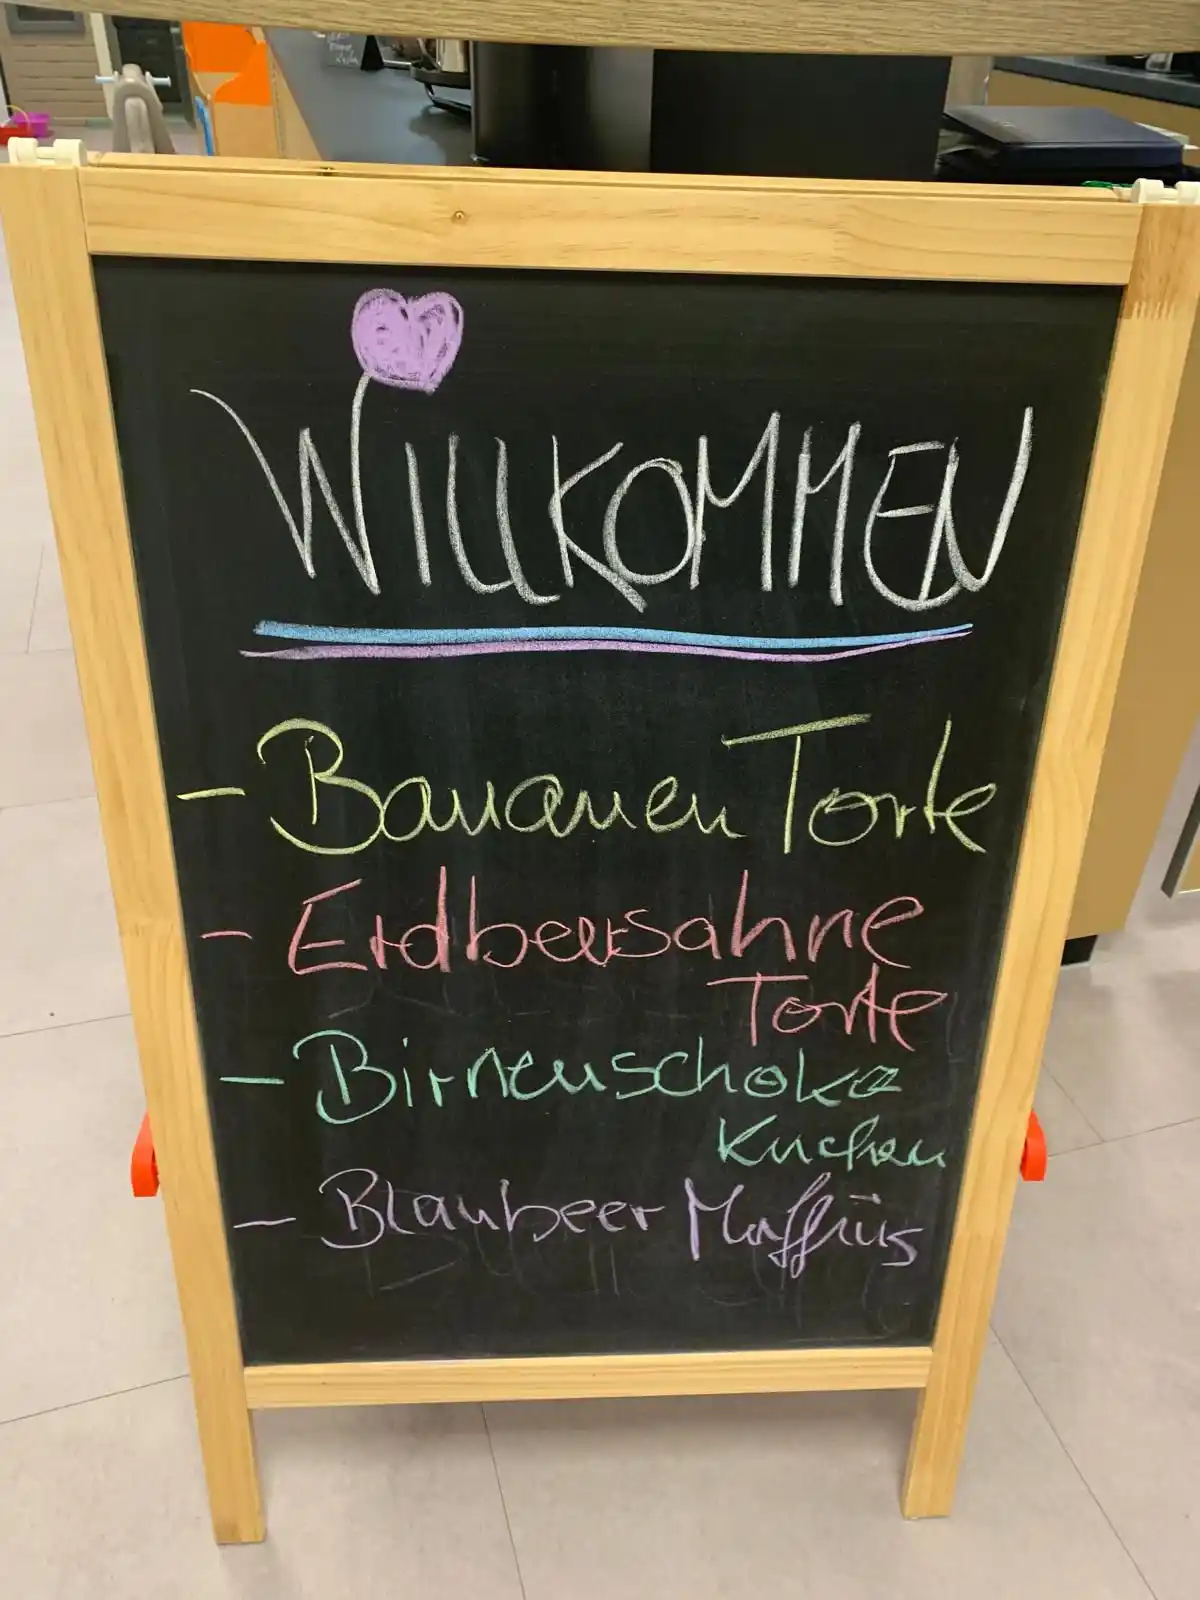 WILLKOMMEN
- Bananen Torte
- Erdbeersahne
Torte
- Birnenschoko
Kuchen
- Blaubeer Muffins